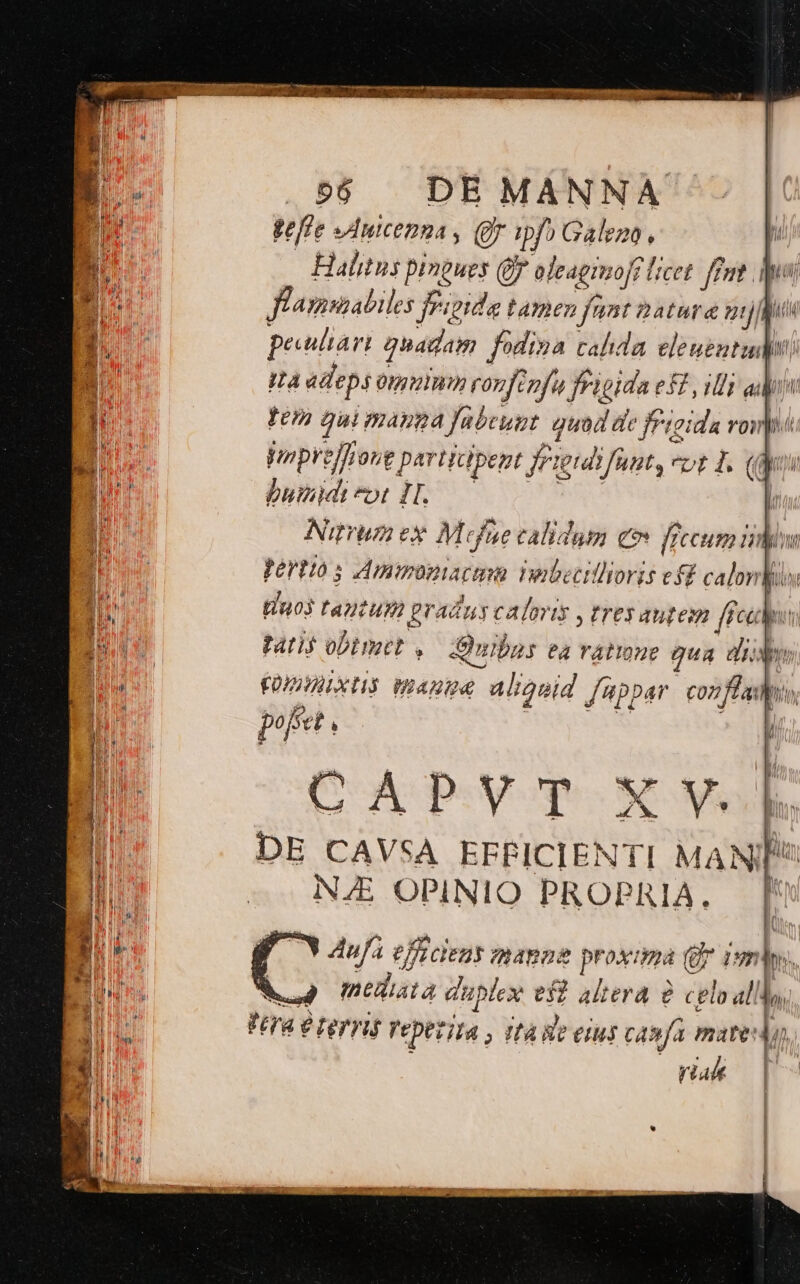 96 DE MANNA
teste Auicenna, & ipso Galeno.
Halitus pingues & oleaginosi licet sint
flammabiles frigidæ tamen sunt naturæ nisi
peculiari quadam fodina calida eleuentur
ita adeps omnium consensu frigida est, illi au
tem qui manna subeunt quod de frigida
impressione participent frigidi sunt, vt I. &
humidi vt II.
Nitrum ex Mesue calidum & siccum in
tertio; Ammoniacum imbecillioris est
duos tantum gradus caloris, tres autem
tatis obtinet, Quibus ea ratione qua
commixtis mannæ aliquid suppar
posset.
CAPVT XV.
DE CAVSA EFFICIENTI MAN
NÆ OPINIO PROPRIA.
CAusa efficiens mannæ proxima & im
mediata duplex est altera è cęlo al
tera è terris repetita, ita vt eius causa mate
riale